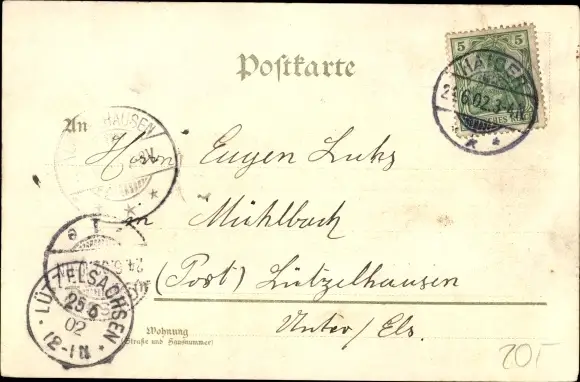 Postkarte
5
HAIGER
6.02.3-4N.
An
HAUSEN
Herrn Eugen Luks
in Mühlbach
(Post) Lützelhausen
Unter/Els.
LÜTZELSACHSEN
25 6
02
12-1N
Wohnung
(Straße und Hausnummer)
20,-